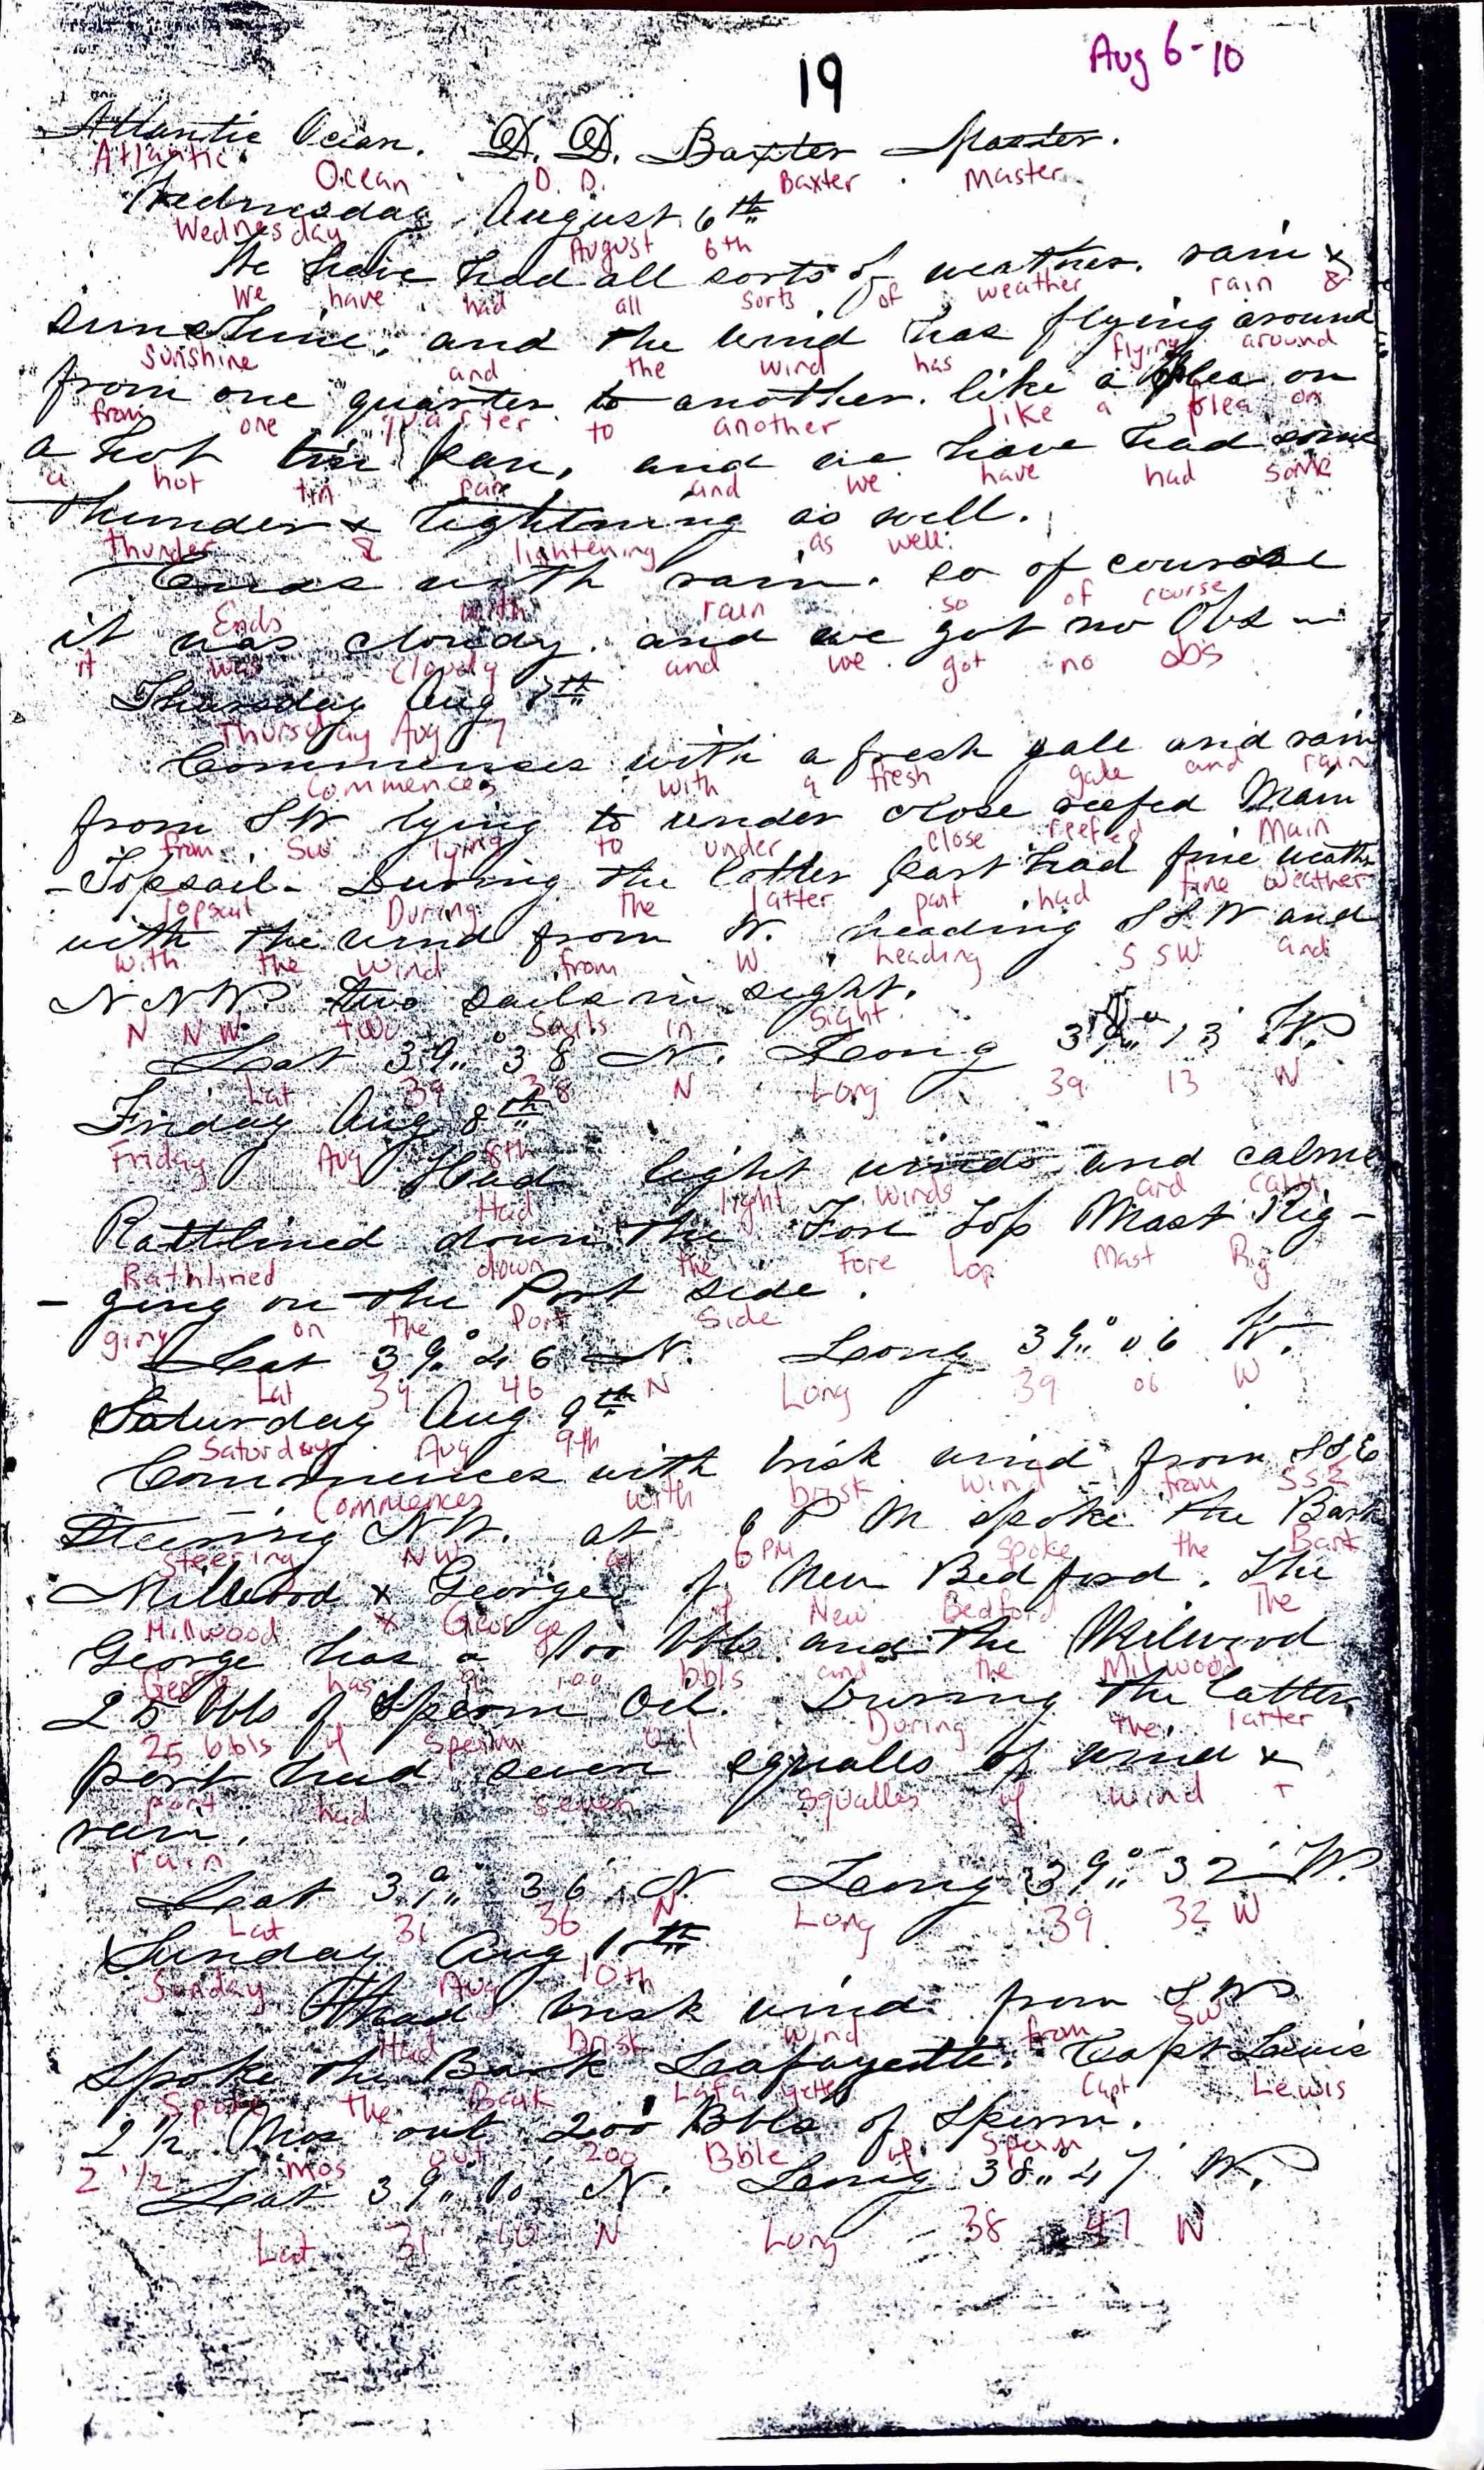 Aug 6-10
19
Atlantic Ocean. D. D. Baxter Master.
Atlantic Ocean D. D. Baxter Master
Wednesday August 6th
Wednesday August 6th
We have had all sorts of weather. rain &
We have had all sorts of weather rain &
sunshine, and the wind has flying around
sunshine and the wind has flying around
from one quarter to another. like a flea on
from one quarter to another like a flea on
a hot tin pan, and we have had some
a hot tin pan and we have had some
thunder & lightning as well.
thunder & lightening as well.
Ends with rain. so of course
Ends with rain so of course
it was cloudy. and we got no Obs
it was cloudy and we got no obs
Thursday Aug 7th
Thursday Aug 7
Commences with a fresh gale and rain
Commences with a fresh gale and rain
from SW lying to under close reefed Main
from SW lying to under close reefed Main
-Topsail- During the latter part had fine weath
Topsail During the latter part had fine weather
with the wind from W. heading SSW and
with the wind from W heading S SW and
NNW. two sails in sight.
N N W two sails in sight
Lat 39° 38 N. Long 39° 13 W.
Lat 39 38 N Long 39 13 W
Friday Aug 8th
Friday Aug 8th
Had light winds and calms
Had light winds and calm
Rattlined down the Fore Top Mast Rig-
Rathlined down the Fore Top Mast Rig
-ging on the Port side.
ging on the Port Side
Lat 39° 46 N. Long 39° 06 W.
Lat 39 46 N Long 39 06 W
Saturday Aug 9th
Saturday Aug 9th
Commences with brisk wind from SSE
Commences with brisk wind from SSE
Steering NW. at 6 PM spoke the Bark
steering NW at 6 PM spoke the Bark
Millwood & George of New Bedford. The
Millwood & George of New Bedford The
George has a 100 bbls and the Milwood
George has a 100 bbls and the Milwood
25 bbls of Sperm Oil. During the latter
25 bbls of Sperm Oil During the latter
part had seven squalls of wind &
part had seven squalles of wind +
rain.
rain
Lat 39° 36 N. Long 39° 32 W.
Lat 31 36 N Long 39 32 W
Sunday Aug 10th
Sunday Aug 10th
Had brisk wind from SW
Had brisk wind from SW
Spoke the Bark Lafayette. Capt Lewis
Spoke the Bark Lafayette Capt Lewis
2 1/2 Mos out 200 Bbls of Sperm.
2 1/2 mos out 200 Bble of Sperm
Lat 39° 10 N. Long 38° 47 W.
Lat 31 10 N Long 38 47 W